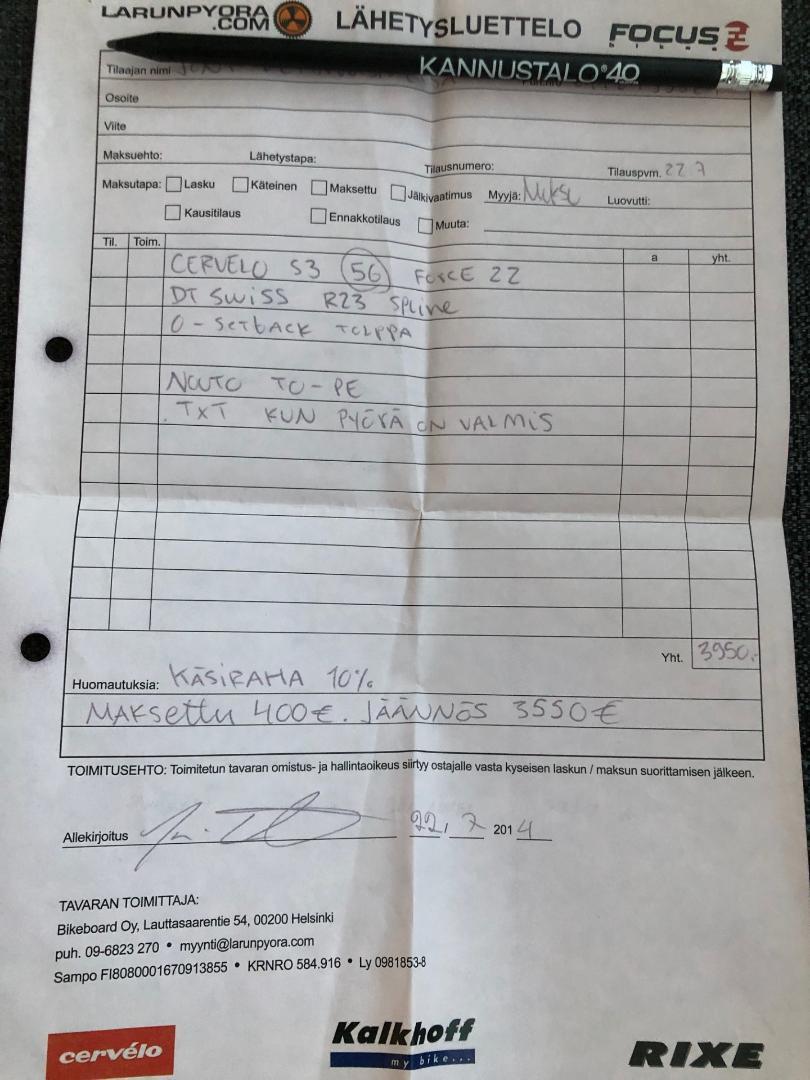 LARUNPYORA.COM LÄHETYSLUETTELO FOCUS
KANNUSTALO 40
Tilaajan nimi
Osoite
Viite
Maksuehto: Lähetystapa: Tilausnumero: Tilauspvm. 22 7
Maksutapa: Lasku Käteinen Maksettu Jälkivaatimus Myyjä: Luovutti:
Kausitilaus Ennakkotilaus Muuta:
Til. Toim. a yht.
CERVELO S3 56 FORCE 22
DT SWISS R23 SPLINE
0-SETBACK TOLPPA
NOUTO TO-PE
TXT KUN PYÖRÄ ON VALMIS
Yht. 3950.-
Huomautuksia: KÄSIRAHA 10%
MAKSETTU 400€. JÄÄNNÖS 3550€
TOIMITUSEHTO: Toimitetun tavaran omistus- ja hallintaoikeus siirtyy ostajalle vasta kyseisen laskun / maksun suorittamisen jälkeen.
Allekirjoitus 22. 7 2014
TAVARAN TOIMITTAJA:
Bikeboard Oy, Lauttasaarentie 54, 00200 Helsinki
puh. 09-6823 270 • myynti@larunpyora.com
Sampo FI8080001670913855 • KRNRO 584.916 • Ly 0981853-8
cervélo Kalkhoff RIXE
my bike...